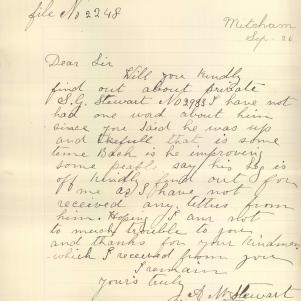 file No 2248
Mitcham
Sep. 26
Dear Sir
Will you kindly
find out about private
S.G. Stewart No 3983 I have not
had one word about him
since you said he was up
and that is some
time Back is he improving
some people say his leg is
off Kindly find out for
me as I have not
received any letters from
him. Hoping I am not
to much trouble to you
and thanks for your kindness
which I received from you
I remain
yours truly
A. M. Stewart